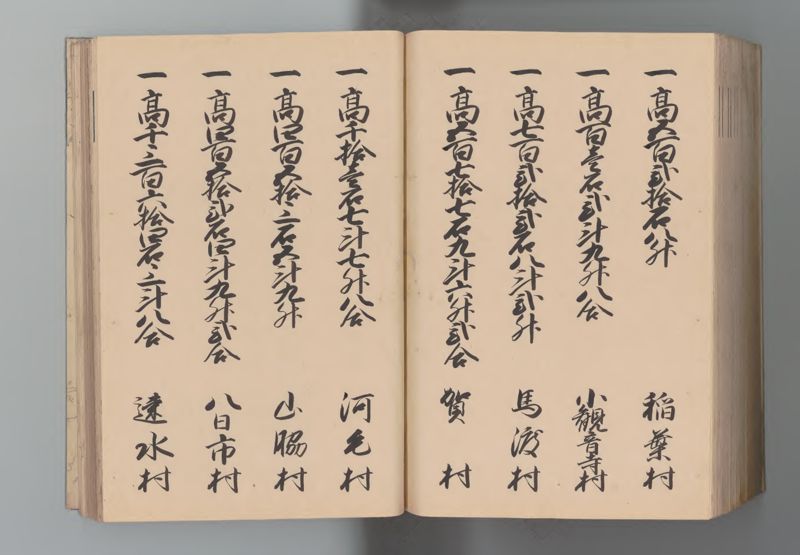 一高五百弐拾石八升 稲葉村
一高百壱石弐斗九升八合 小観音寺村
一高七百弐拾弐石八斗弐升 馬渡村
一高五百七拾七石九斗六升弐合 賀村
一高千拾壱石七斗七升八合 河毛村
一高四百五拾三石五斗九升 山脇村
一高四百五拾弐石四斗九升弐合 八日市村
一高千三百六拾四石三斗八合 速水村